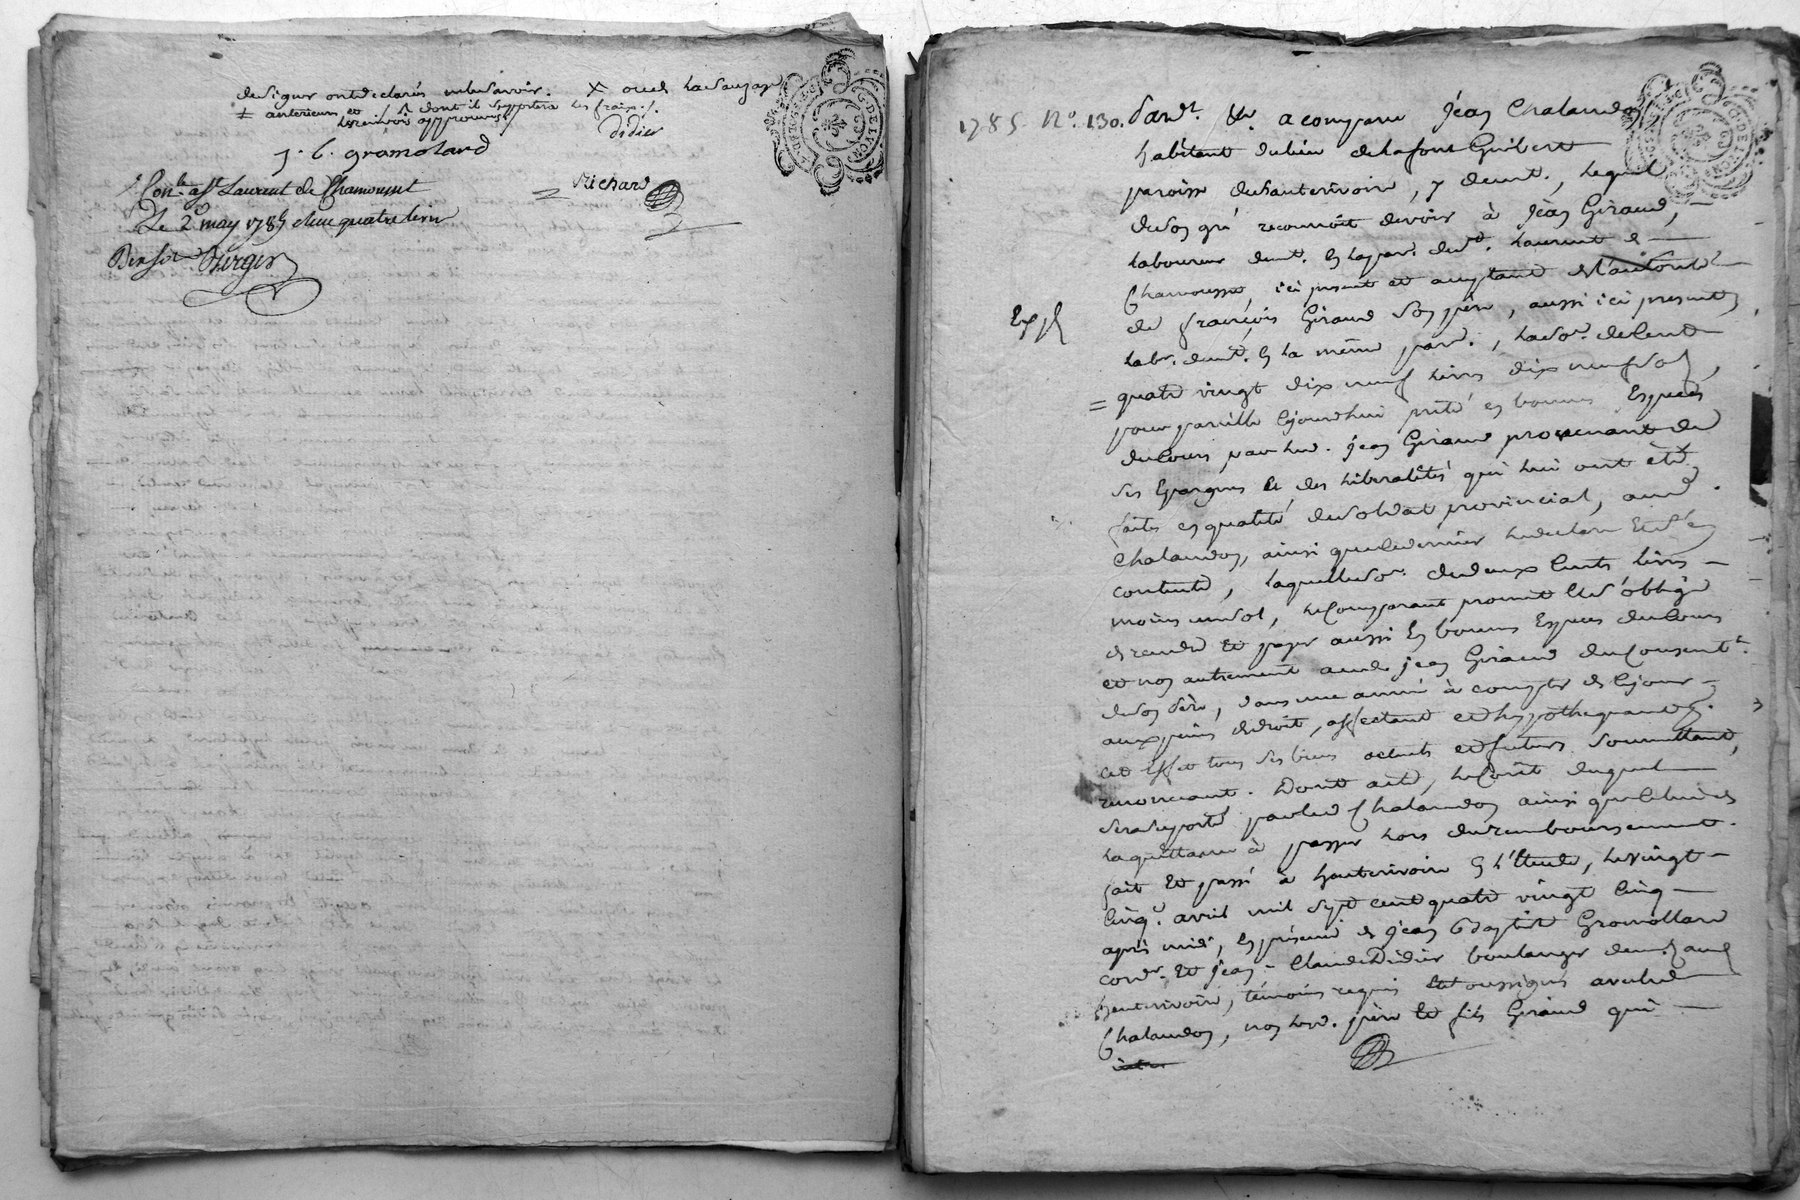 de signer ont déclarés ne le savoir. X ou de
+ anterieurs et dont il supportra les frais ./.
Didier
J. b. gramolard
Con.le a St. Laurent de Chamousset
Richard
Le 2 may 1785
Berger
G. DE LYON
1785 N°. 130. Pard.t &c. a comparu Jéan Chalandon
habitant du lieu de la font Guibert
paroisse de hauterivoire, y demt., lequel
de son gré reconnoit devoir à Jéan Giraud,
laboureur demt. en la par. de St. Laurent de
Chamousset, ici present et acceptant de l'autorité
de françois Giraud son père, aussi ici present
Exp.é
labr. demt. en la même par., la so. de cent
quatre vingt dix neuf livres dix neuf sols,
= pour pareille ce jourdhui prêté en bonnes Espèces
du Cours par led. jean Giraud provenant de
ses Epargnes et des liberalités qui lui ont été
faites en qualité de soldat provincial, aud.
Chalandon, ainsi que ce dernier le declare
contente, laquelle so. de deux Cents livres
moins un sol, le Comparant promet et s'oblige
de rendre et payer aussi En bonnes Especes du Cours
et non autrement aud. jean Giraud du Consentt.
de son père, dans une année à compter de ce jour
aux peines de droit, affectant et hypothequant à
cet Effet tous ses biens actuels et futurs soumettant,
renonceant. Dont acte, le Coût duquel
sera suporté par led. Chalandon ainsi que celui de
la quittance à passer lors du remboursement.
fait et passé à hauterivoire en l'Etude, le vingt
Cinq. avril mil sept cent quatre vingt Cinq
après midi, En présence de Jean Baptiste Gromollard
cordr. et jean-Claude Didier boulanger demt. aud.
hauterivoire, témoins requis et soussignés avec led.
Chalandon, non lesd. père et fils Giraud qui